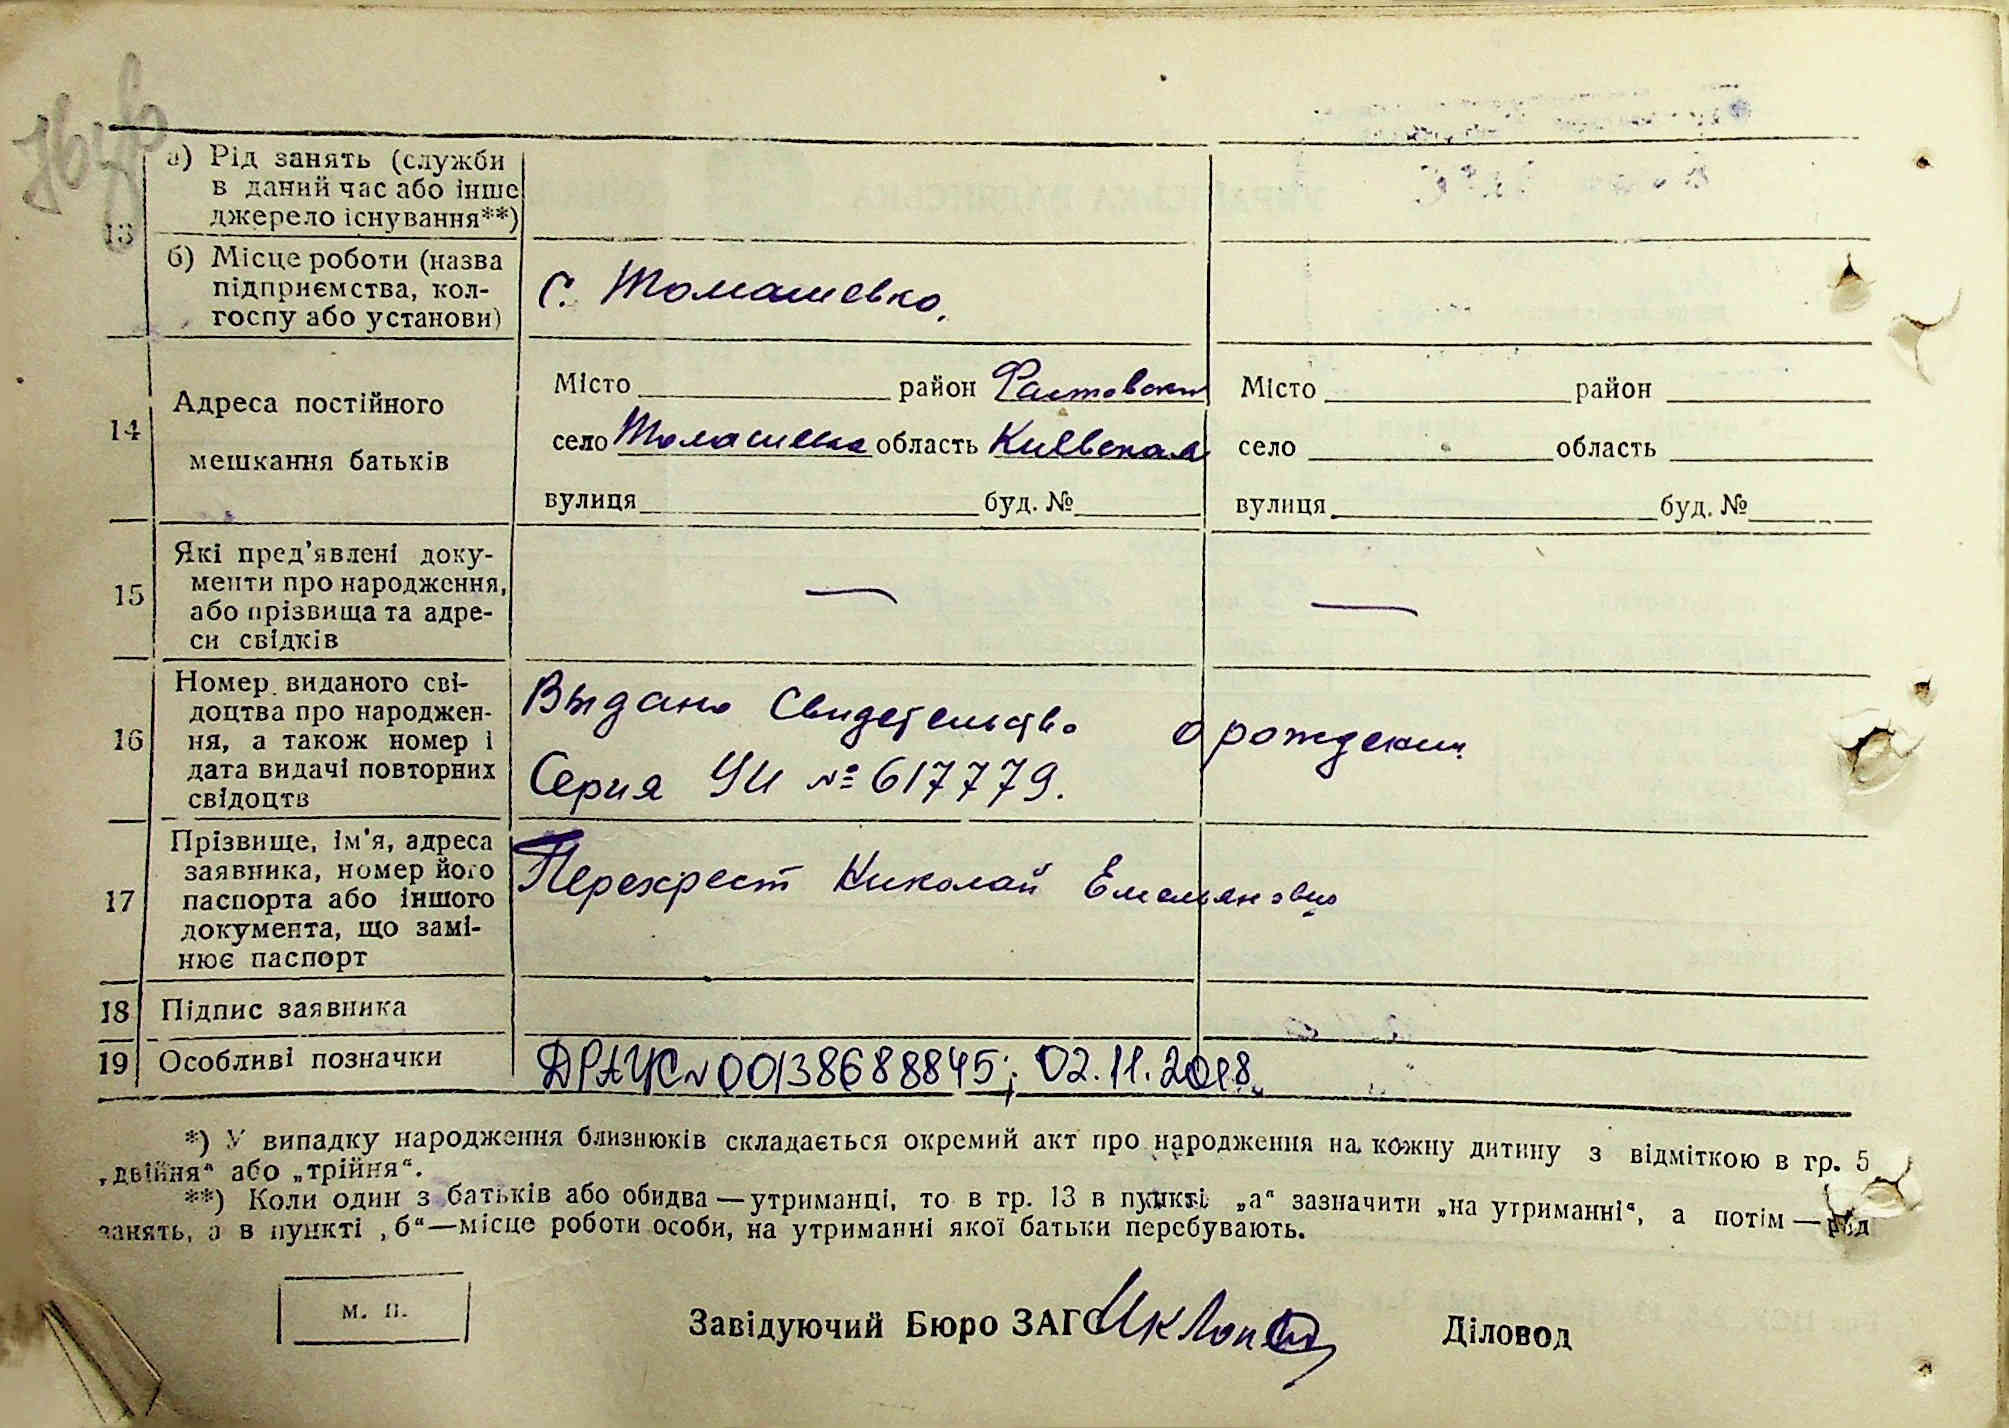 13
а) Рід занять (служби
в даний час або інше
джерело існування**)
б) Місце роботи (назва
підприємства, кол-
госпу або установи)
с. Томашевко.
14
Адреса постійного
мешкання батьків
Місто район Фастовски
село Томашевка область Киевская
вулиця буд. №
Місто район
село область
вулиця буд. №
15
Які пред'явлені доку-
менти про народження,
або прізвища та адре-
си свідків
—
—
16
Номер виданого сві-
доцтва про народжен-
ня, а також номер і
дата видачі повторних
свідоцтв
Выдано Свидетельство о рождении
Серия УИ № 617779.
17
Прізвище, ім'я, адреса
заявника, номер його
паспорта або іншого
документа, що замі-
нює паспорт
Перехрест Николай Емельянович
18
Підпис заявника
19
Особливі позначки
ДРАЦС №00138688845; 02.11.2018.
*) У випадку народження близнюків складається окремий акт про народження на кожну дитину з відміткою в гр. 5
„двійня“ або „трійня“.
**) Коли один з батьків або обидва—утриманці, то в гр. 13 в пункті „а“ зазначити „на утриманні“, а потім—рід
занять, а в пункті „б“—місце роботи особи, на утриманні якої батьки перебувають.
м. п.
Завідуючий Бюро ЗАГС
Діловод